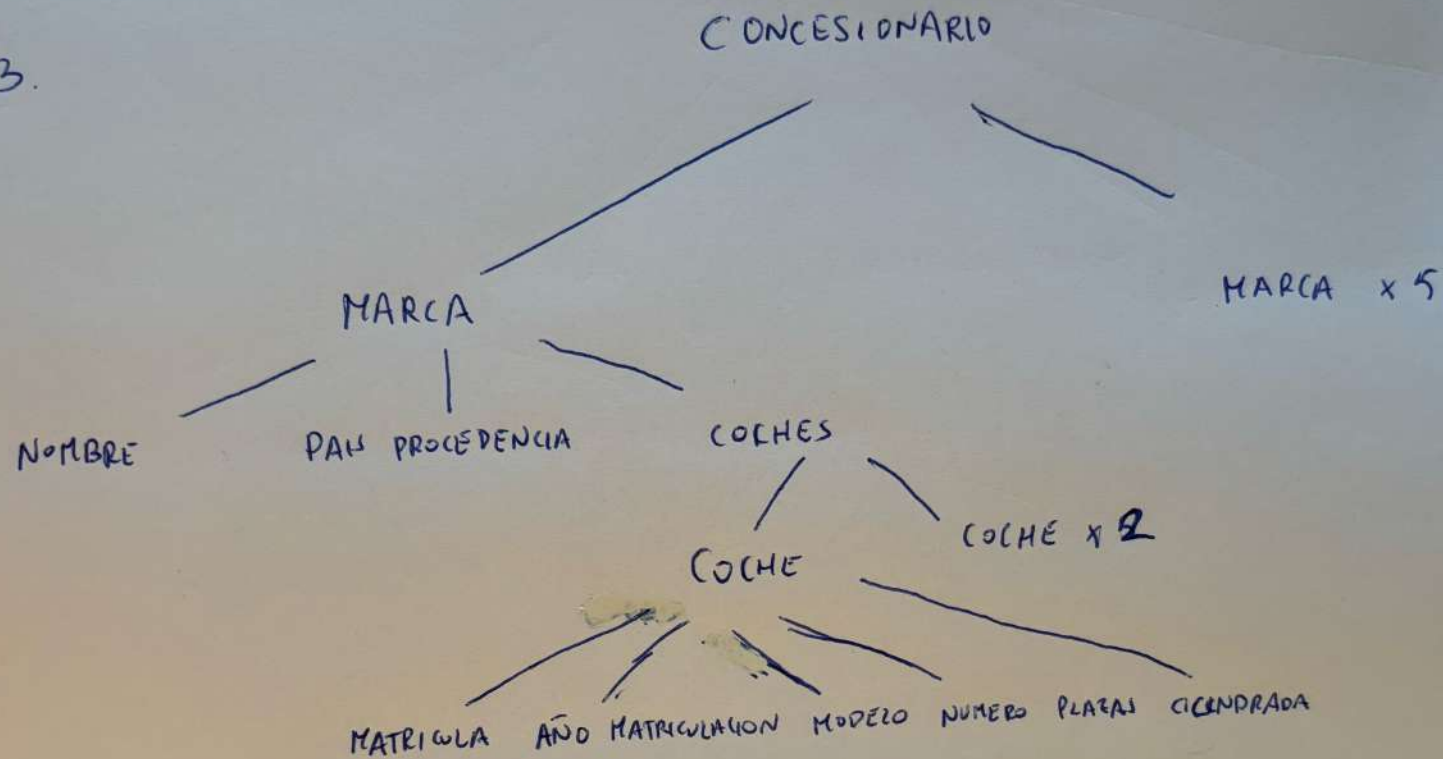 CONCESIONARIO
3.
MARCA
MARCA x 5
NOMBRE
PAIS PROCEDENCIA
COCHES
COCHE
COCHE x 2
MATRICULA AÑO MATRICULACION MODELO NUMERO PLAZAS CILINDRADA